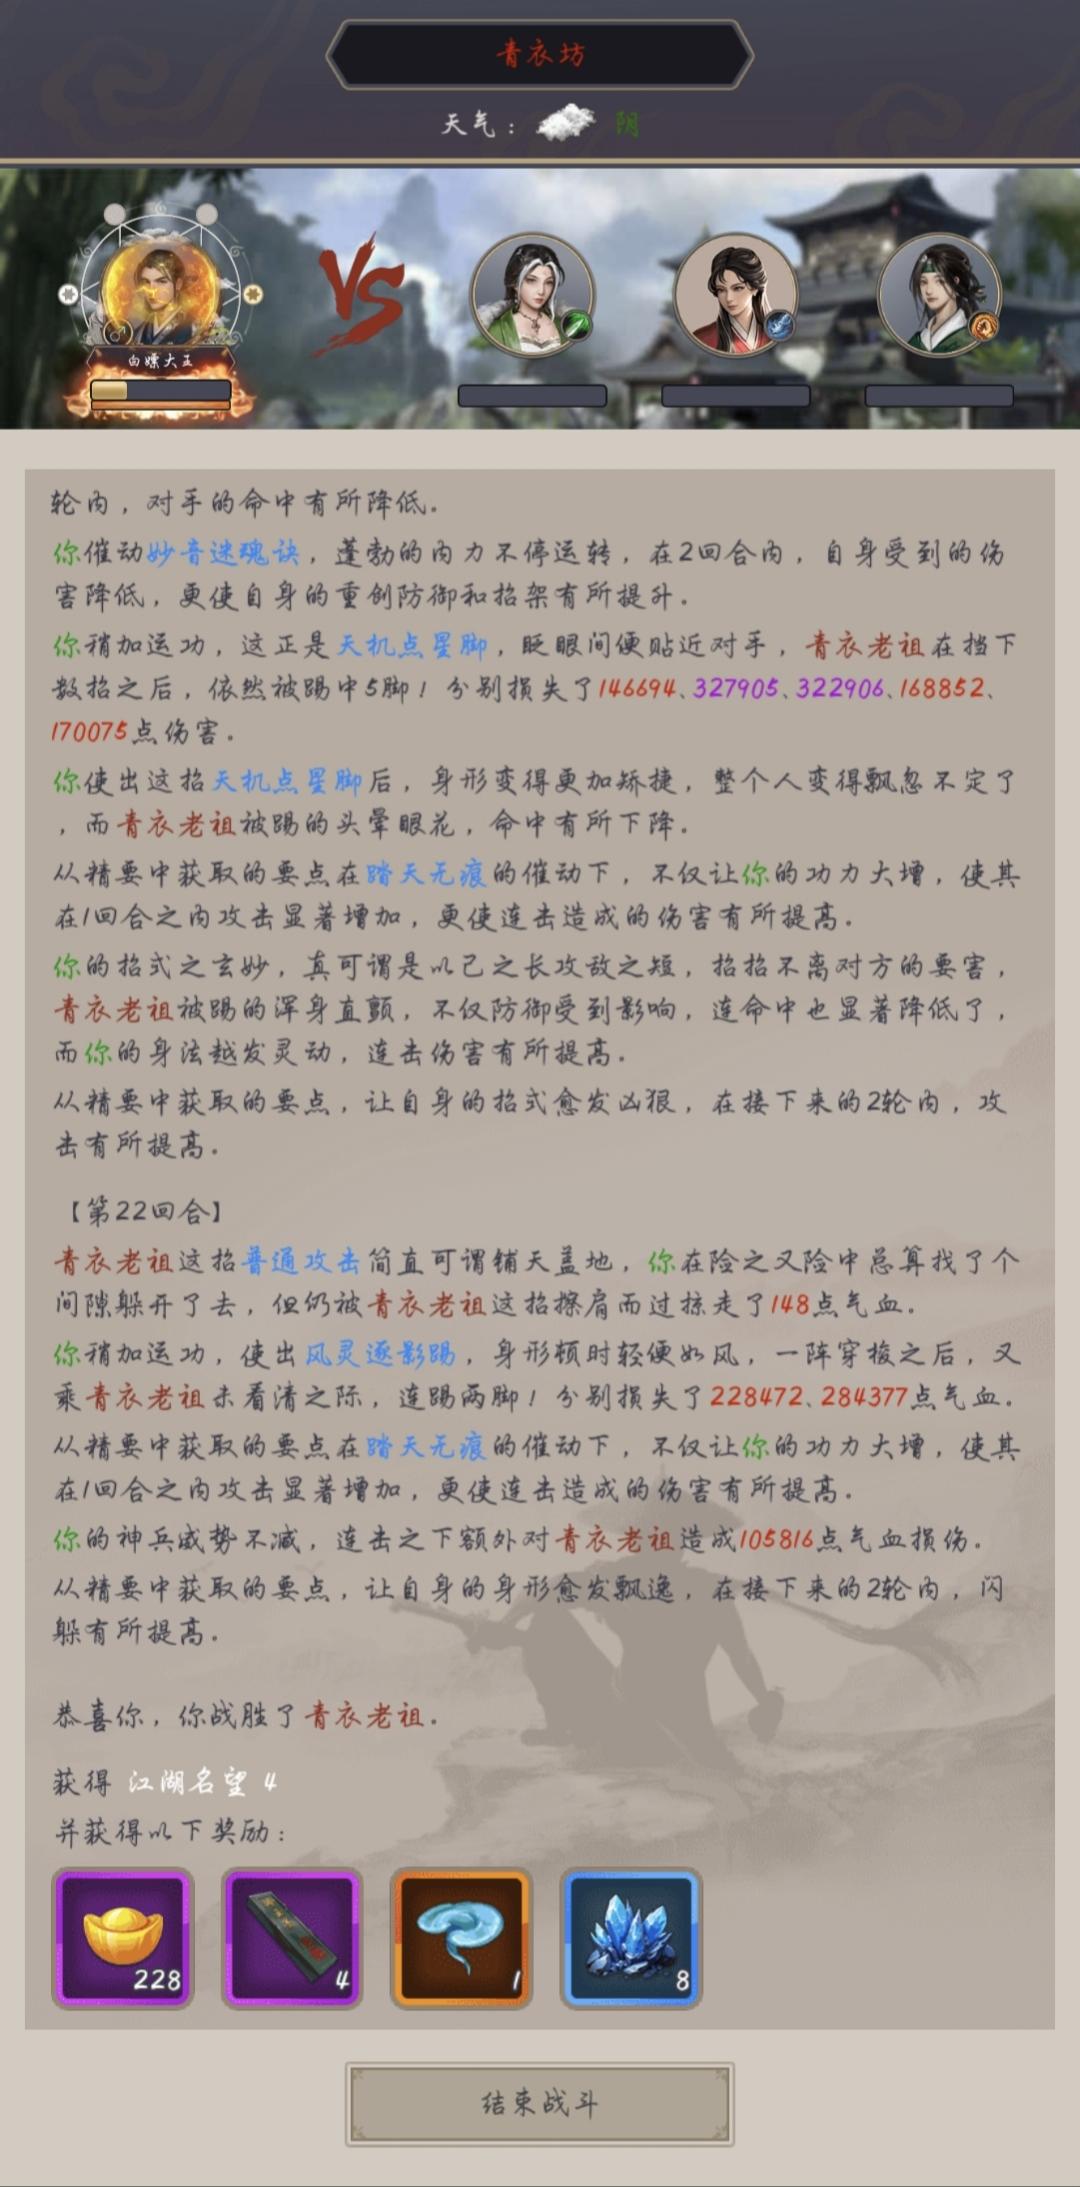 青衣坊
天气：阴
VS
白嫖大王
轮内，对手的命中有所降低。
你催动妙音迷魂诀，蓬勃的内力不停运转，在2回合内，自身受到的伤
害降低，更使自身的重创防御和招架有所提升。
你稍加运功，这正是天机点星脚，眨眼间便贴近对手，青衣老祖在挡下
数招之后，依然被踢中5脚！分别损失了146694、327905、322906、168852、
170075点伤害。
你使出这招天机点星脚后，身形变得更加矫捷，整个人变得飘忽不定了
，而青衣老祖被踢的头晕眼花，命中有所下降。
从精要中获取的要点在踏天无痕的催动下，不仅让你的功力大增，使其
在1回合之内攻击显著增加，更使连击造成的伤害有所提高。
你的招式之玄妙，真可谓是以己之长攻敌之短，招招不离对方的要害，
青衣老祖被踢的浑身直颤，不仅防御受到影响，连命中也显著降低了，
而你的身法越发灵动，连击伤害有所提高。
从精要中获取的要点，让自身的招式愈发凶狠，在接下来的2轮内，攻
击有所提高。
【第22回合】
青衣老祖这招普通攻击简直可谓铺天盖地，你在险之又险中总算找了个
间隙躲开了去，但仍被青衣老祖这招擦肩而过掠走了148点气血。
你稍加运功，使出风灵逐影踢，身形顿时轻便如风，一阵穿梭之后，又
乘青衣老祖未看清之际，连踢两脚！分别损失了228472、284377点气血。
从精要中获取的要点在踏天无痕的催动下，不仅让你的功力大增，使其
在1回合之内攻击显著增加，更使连击造成的伤害有所提高。
你的神兵威势不减，连击之下额外对青衣老祖造成105816点气血损伤。
从精要中获取的要点，让自身的身形愈发飘逸，在接下来的2轮内，闪
躲有所提高。
恭喜你，你战胜了青衣老祖。
获得 江湖名望 4
并获得以下奖励：
228 4 1 8
结束战斗